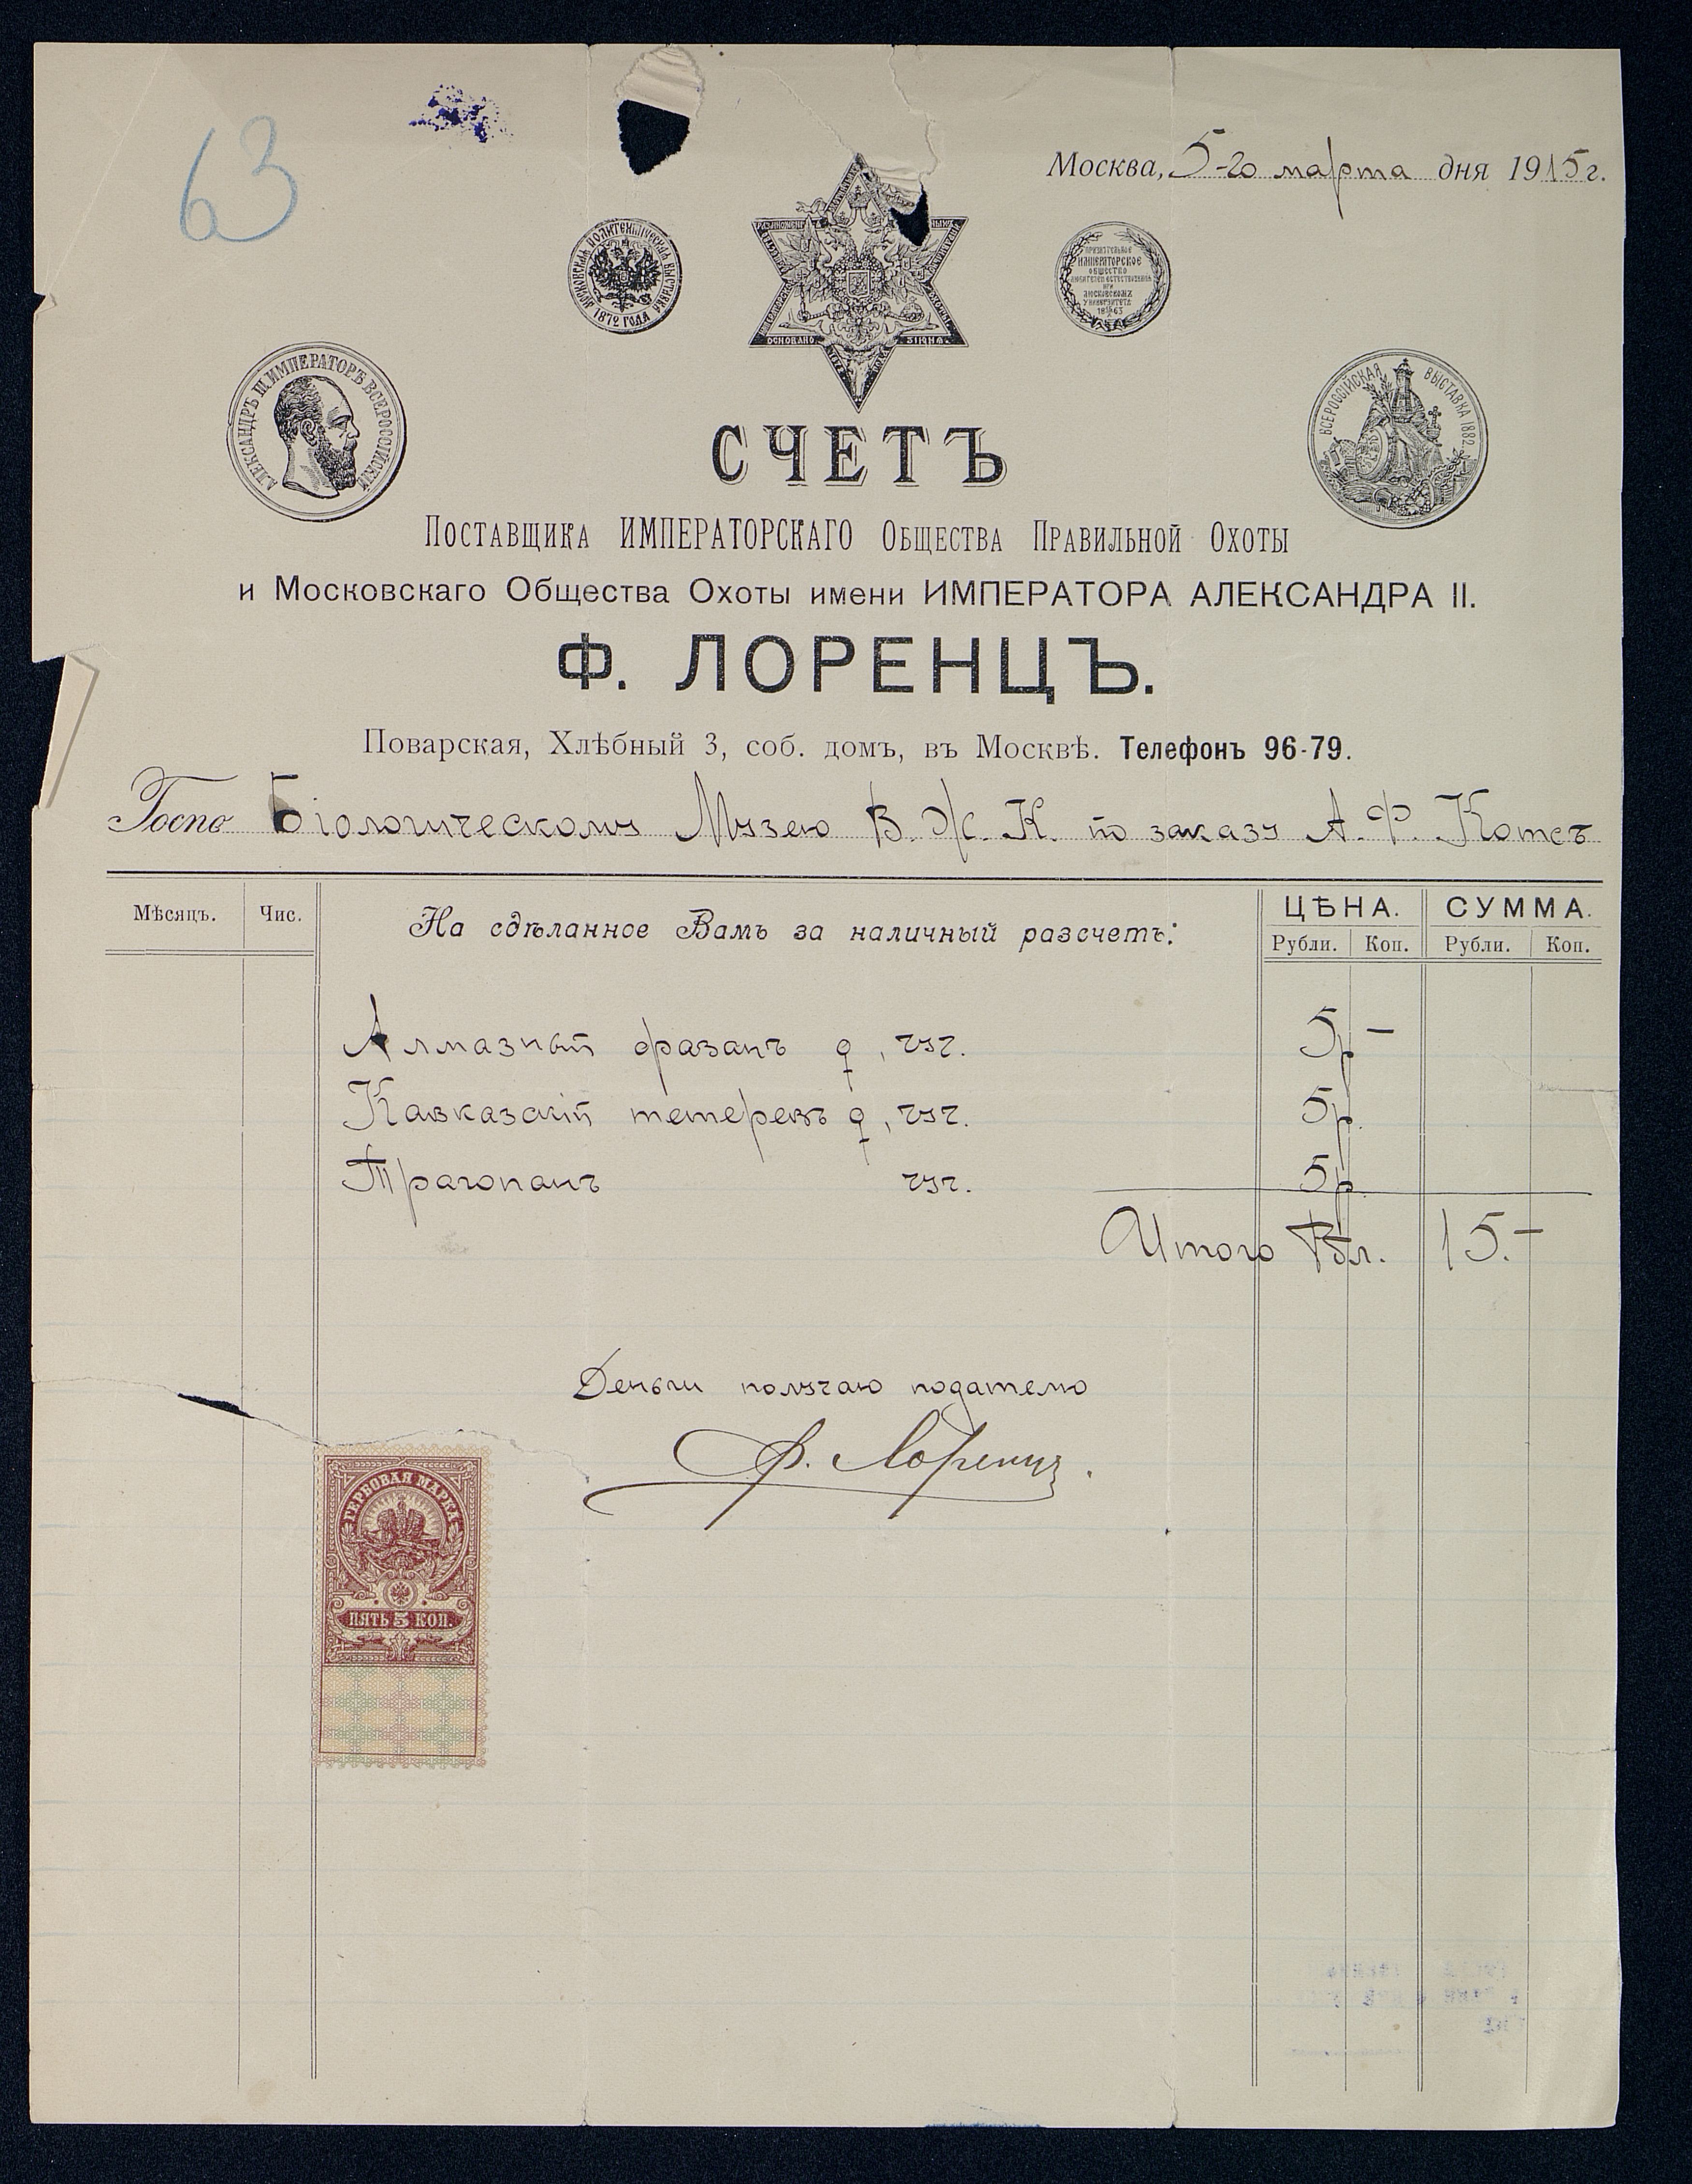 63
Москва, 5-го марта дня 1915 г.
МОСКОВСКАЯ ПОЛИТЕХНИЧЕСКАЯ ВЫСТАВКА
1872 ГОДА
ОСНОВАНО
ИМПЕРАТОРСКОЕ
ОБЩЕСТВО
ЛЮБИТЕЛЕЙ ЕСТЕСТВОЗНАНИЯ
ПРИ
МОСКОВСКОМЪ
УНИВЕРСИТЕТѢ
АЛЕКСАНДРЪ III ИМПЕРАТОРЪ ВСЕРОССІЙСКІЙ
ВСЕРОССІЙСКАЯ ВЫСТАВКА 1882
СЧЕТЪ
ПОСТАВЩИКА ИМПЕРАТОРСКАГО ОБЩЕСТВА ПРАВИЛЬНОЙ ОХОТЫ
и Московскаго Общества Охоты имени ИМПЕРАТОРА АЛЕКСАНДРА II.
Ф. ЛОРЕНЦЪ.
Поварская, Хлѣбный 3, соб. домъ, въ Москвѣ. Телефонъ 96-79.
Госпо Біологическому Музею В. Ж. К. по заказу А. Ф. Котсъ
Мѣсяцъ. Чис. На сдѣланное Вамъ за наличный разсчетъ: ЦѢНА. СУММА.
Рубли. Коп. Рубли. Коп.
Алмазный фазанъ ♀, чуч. 5р –
Кавказскій тетеревъ ♀, чуч. 5р.
Трагопанъ чуч. 5р.
Итого Рбл. 15.–
Деньги получаю подателю
Ф. Лоренцъ.
ГЕРБОВАЯ МАРКА
ПЯТЬ 5 КОП.